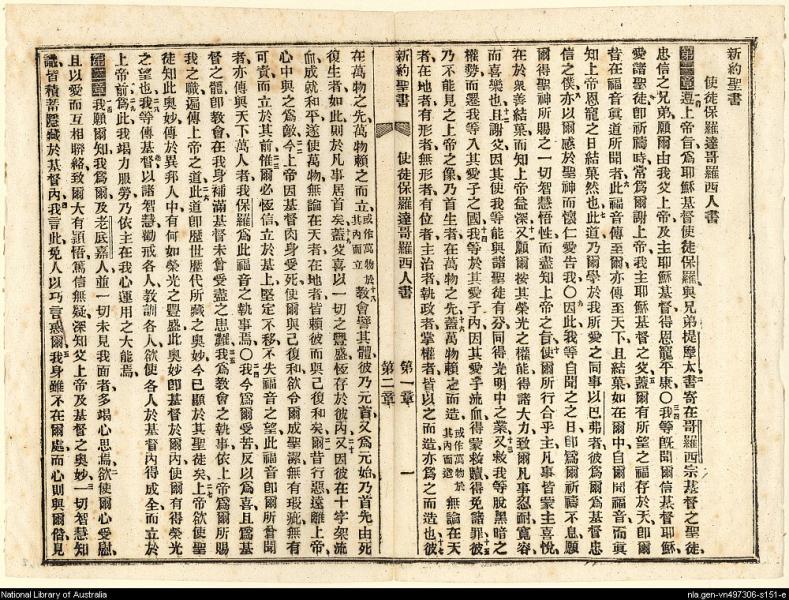 新約聖書
使徒保羅達哥羅西人書
第一章遵上帝旨爲耶穌基督使徒保羅與兄弟提摩太書寄在哥羅西宗基督之聖徒
忠信之兄弟願爾由我父上帝及主耶穌基督得恩寵平康〇我等旣聞爾信基督耶穌
愛諸聖徒卽祈禱時常爲爾謝上帝我主耶穌基督之父蓋爾有所望之福存於天卽爾
昔在福音眞道所聞者此福音傳至爾亦傳至天下且結果如在爾中自爾聞福音而眞
知上帝恩寵之日結果然也此道乃爾學於我所愛之同事以巴弗者彼爲爾爲基督忠
信之僕亦以爾感於聖神而懷仁愛告我〇因此我等自聞之之日卽爲爾祈禱不息願
爾得聖神所賜之一切智慧悟性而盡知上帝之旨使爾所行合乎主凡事皆蒙主喜悅
在於衆善結果而知上帝益深又願爾按其榮光之權能得諸大力致爾凡事忍耐寬容
而喜樂也且謝父因其使我等能與諸聖徒有分同得光明中之業又救我等脫黑暗之
權勢而遷我等入其愛子之國我等於其愛子內因其愛子流血得蒙救贖得免諸罪彼
乃不能見之上帝之像乃首生者在萬物之先蓋萬物賴之而造或作萬物於其內而造無論在天
者在地者有形者無形者有位者主治者執政者掌權者皆以之而造亦爲之而造也彼
新約聖書 使徒保羅達哥羅西人書 第一章 第二章 一
在萬物之先萬物賴之而立或作萬物於其內而立教會譬其體彼乃元首又爲元始乃首先由死
復生者如此則於凡事居首矣蓋父喜以一切之豐盛恆存於彼內又因彼在十字架流
血成就和平遂使萬物無論在天者在地者皆賴彼而與己復和矣爾昔行惡遠離上帝
心中與之爲敵今上帝因基督肉身受死使爾與己復和欲令爾成聖潔無有瑕疵無有
可責而立於其前惟爾必恆信立於基上堅定不移不失福音之望此福音卽爾所曾聞
者亦傳與天下萬人者我保羅爲此福音之執事焉〇我今爲爾受苦反以爲喜且爲基
督之體卽教會在我身補滿基督未曾受盡之患難我爲教會之執事依上帝爲爾所賜
我之職遍傳上帝之道此道卽歷世歷代所藏之奧妙今已顯於其聖徒矣上帝欲使聖
徒知此奧妙傳於異邦人中有何如榮光之豐盛此奧妙卽基督於爾內使爾有得榮光
之望也我等傳基督以諸智慧勸戒各人教訓各人欲使各人於基督內得成全而立於
上帝前爲此我竭力服勞乃依主在我心運用之大能焉
第二章我願爾知我爲爾及老底嘉人並一切未見我面者多竭心思焉欲使爾心受慰
且以愛而互相聯絡致爾大有頴悟篤信無疑深知父上帝及基督之奧妙一切智慧知
識皆積蓄隱藏於基督內我言此免人以巧言惑爾我身雖不在爾處而心則與爾偕見
National Library of Australia
nla.gen-vn497306-s151-e